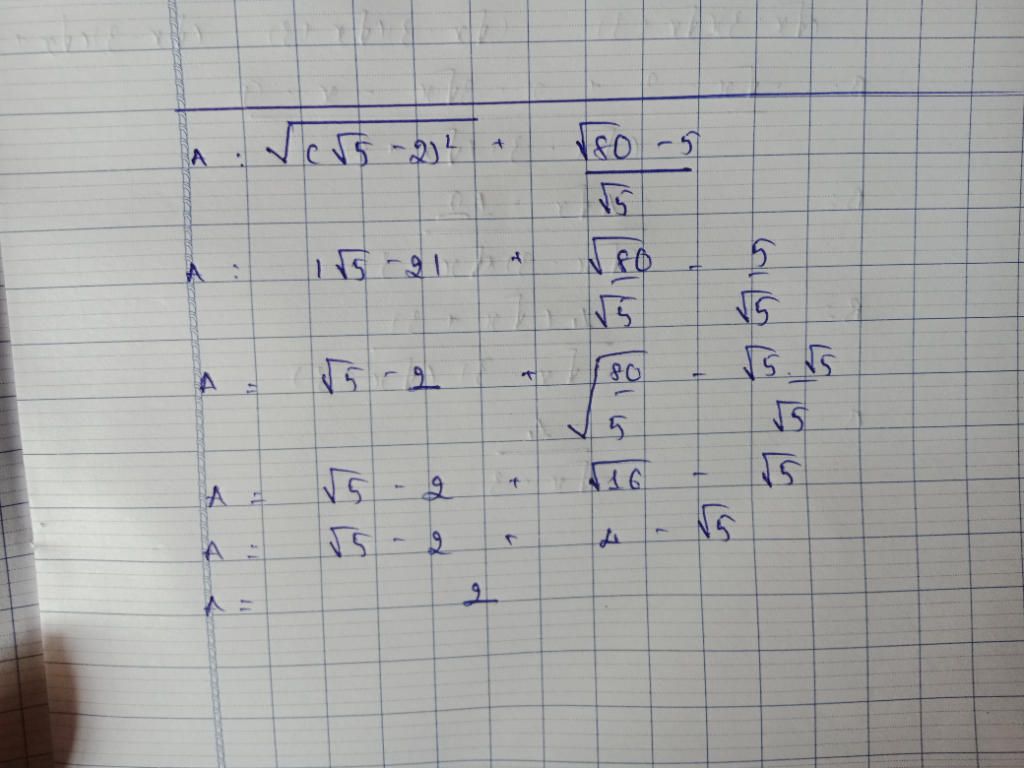 A : √((√5 - 2)²) + (√80 - 5)/√5
A : |√5 - 2| + √80/√5 - 5/√5
A = √5 - 2 + √(80/5) - √5.√5/√5
A = √5 - 2 + √16 - √5
A = √5 - 2 + 4 - √5
A = 2